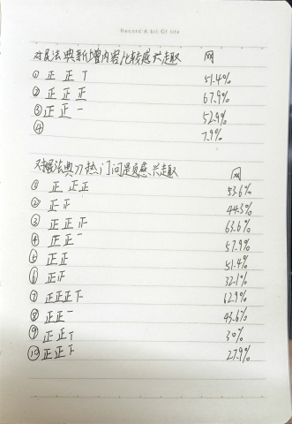 Record A bit Of life
对民法典新增内容比较感兴趣 网
① 正 正 丅 51.4%
② 正 正 正 67.9%
③ 正 正 一 52.9%
④ 7.9%
对民法典刀热门问题更感兴趣 网
① 正 正正 53.6%
② 正 正 44.3%
③ 正 正 正 63.6%
④ 正 正 一 57.9%
⑤ 正 正 51.4%
⑥ 正正 32.1%
⑦ 正正正下 62.9%
⑧ 正正一 43.6%
⑨ 正 正丅 30%
⑩ 正正下 27.9%